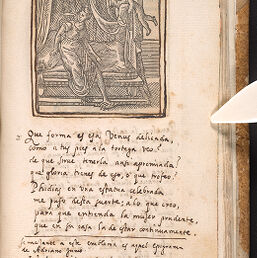 Que forma es esa, Venus deliciada,
como a tus pies a la tortuga veo?
de que sirve tenerla ansi apremiada?
que gloria tienes de eso, o que trofeo?
Phidias en una estatua celebrada
me puso desta suerte; a lo que creo,
para que entienda la mujer prudente,
que en su casa ha de estar continuamente.
Semejante a este emblema es aquel epigrama
de Adriano Junio